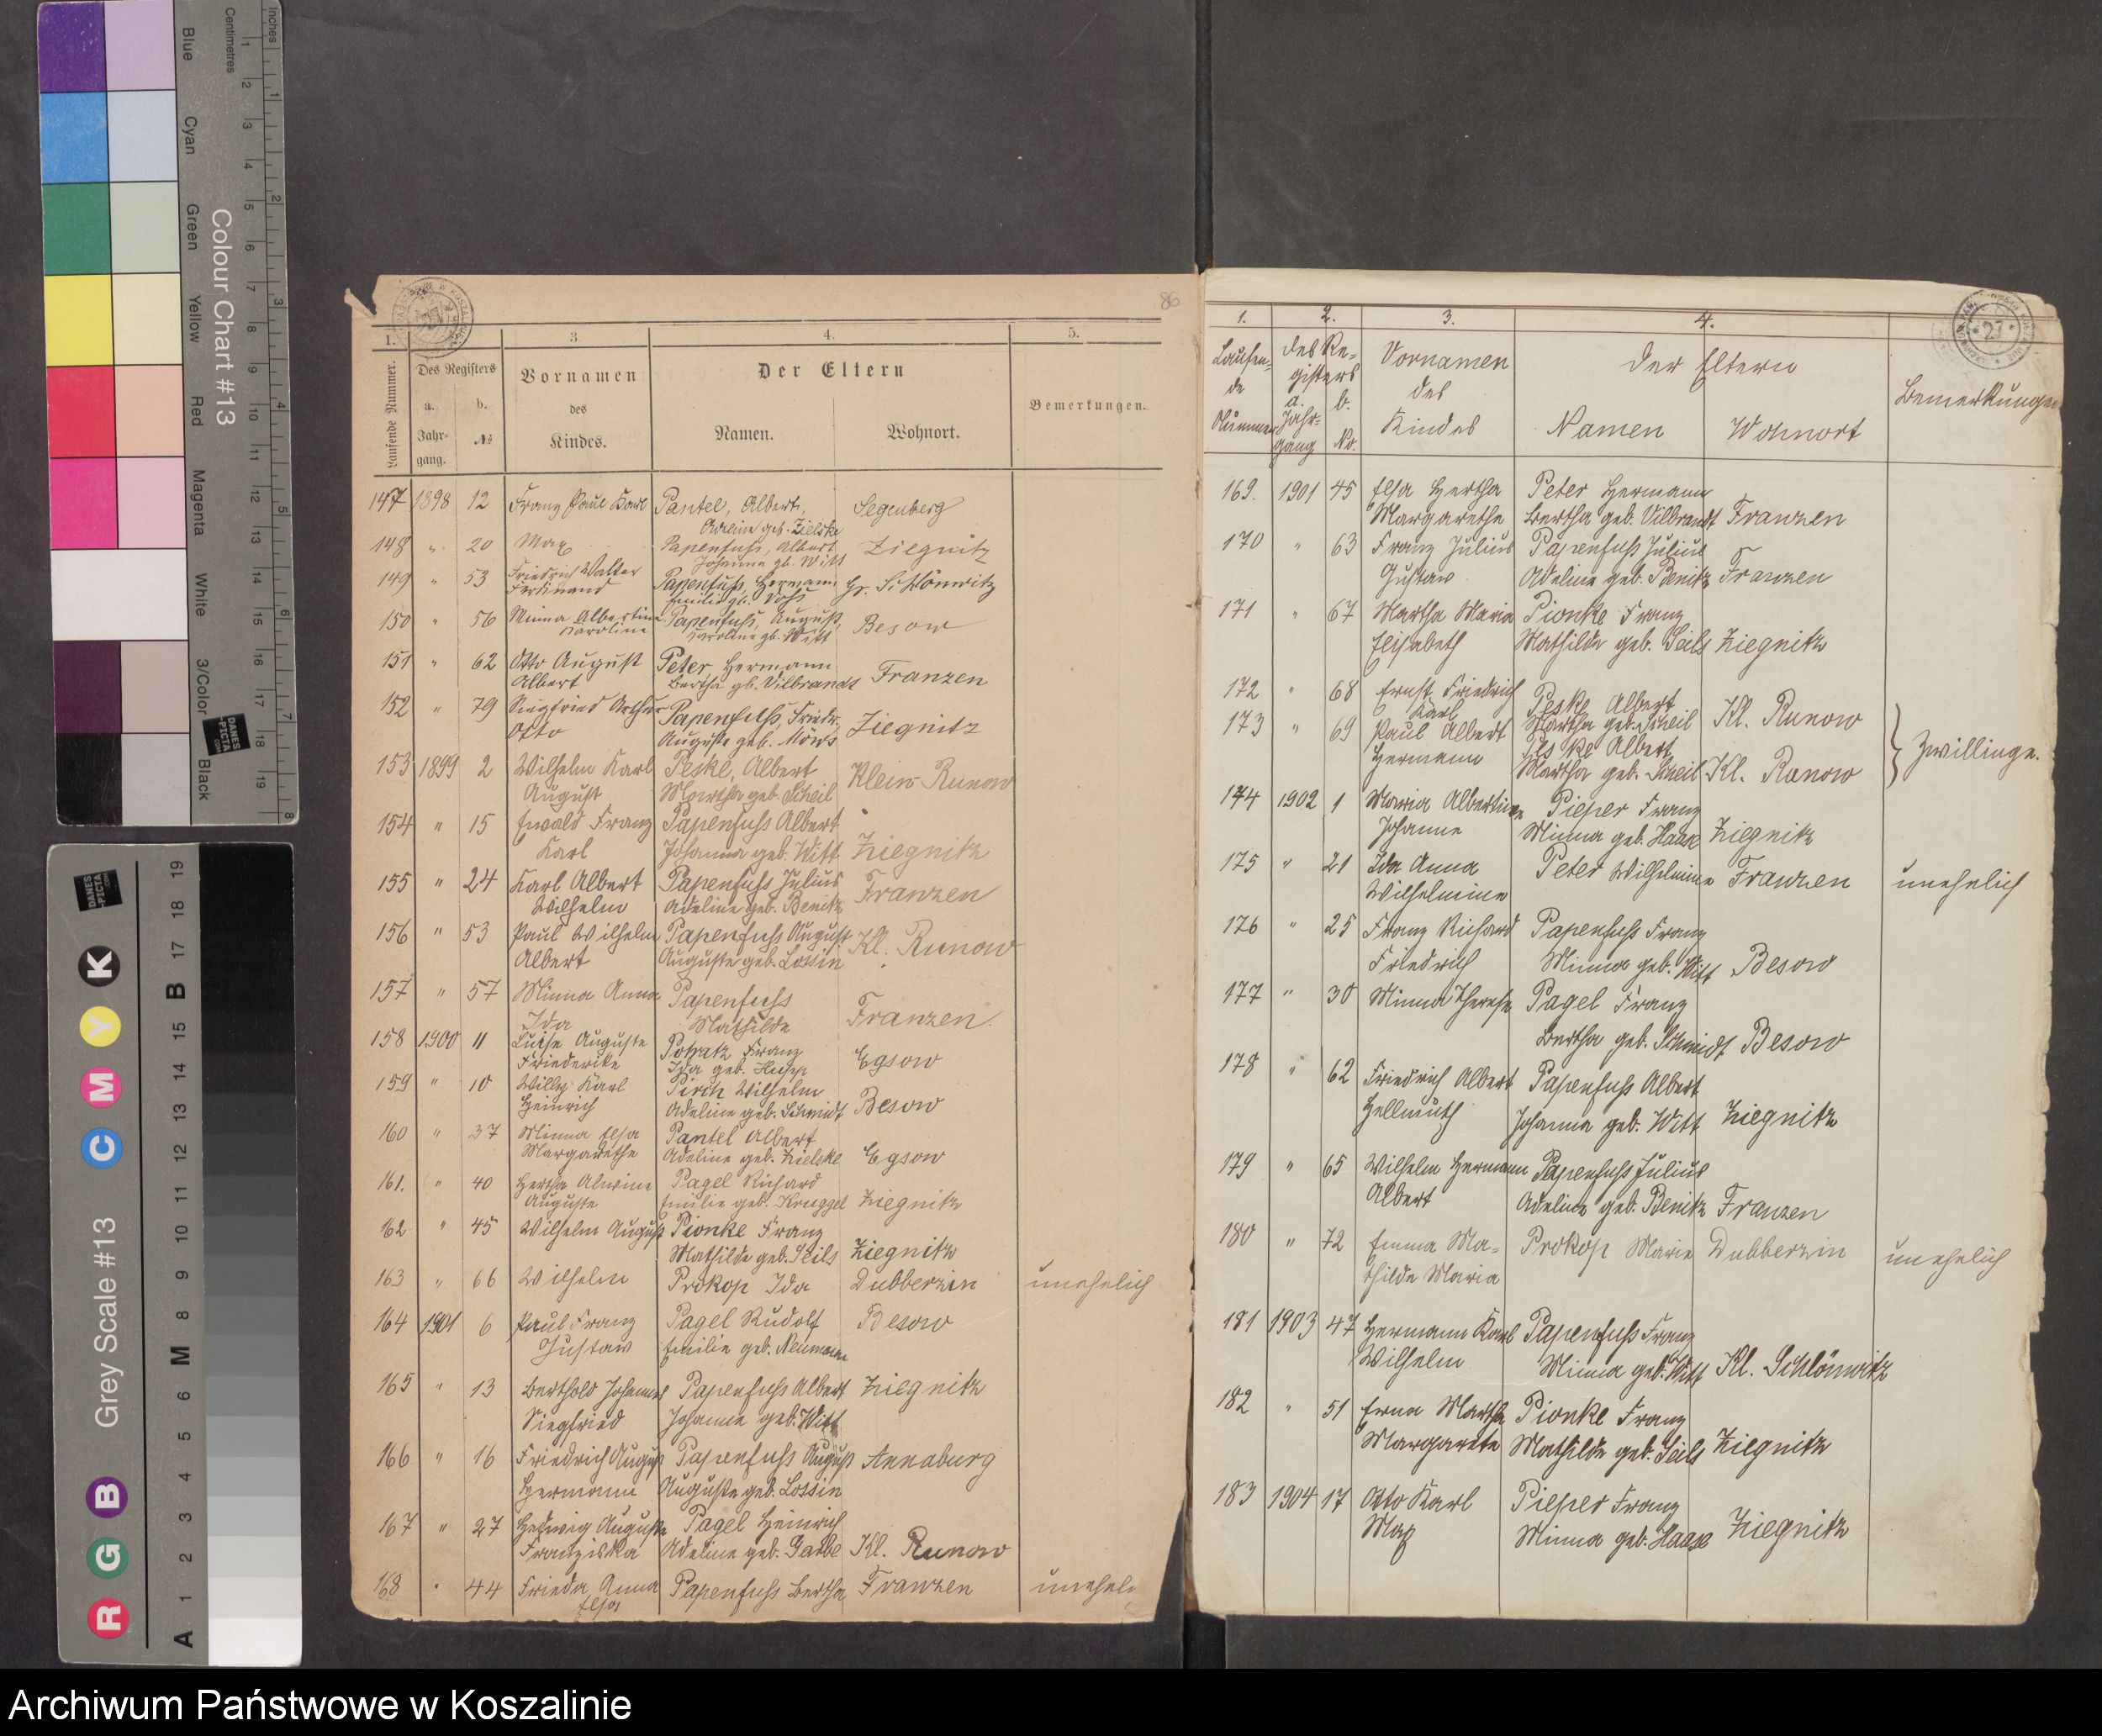 Inches
Centimetres
Colour Chart #13
Blue
Cyan
Green
Yellow
Red
Magenta
White
3/Color
Black
DANES
-PICTA
.COM
Grey Scale #13
R G B C M Y K
A 1 2 3 4 5 6 M 8 9 10 11 12 13 14 15 B 17 18 19
86
1. 3 4. 5.
Laufende Nummer.
Des Registers
a. Jahr-
gang.
b. №
Vornamen
des
Kindes.
Der Eltern
Namen. Wohnort.
Bemerkungen.
147 1898 12 Franz Paul Karl Pantel, Albert, Segenberg
Adeline geb. Zielske
148 " 20 Max Papenfuß, Albert Ziegnitz
Johanna gb. Witt
149 " 53 Friedrich Walter Papenfuß, Hermann Gr. Schlönwitz
Ferdinand Emilie gb. Voß
150 " 56 Minna Albertine Papenfuß, August, Besow
Karoline Karoline gb. Witt
151 " 62 Otto August Peter, Hermann Franzen
Albert Bertha gb. Vilbrandt
152 " 79 Siegfried Arthur Papenfuß, Friedr. Ziegnitz
Otto Auguste geb. Mörs
153 1899 2 Wilhelm Karl Peske, Albert Klein Runow
August Martha geb. Scheil
154 " 15 Ewald Franz Papenfuß Albert
Karl Johanna geb. Witt. Ziegnitz
155 " 24 Karl Albert Papenfuß Julius Franzen
Wilhelm Adeline geb. Benitz
156 " 53 Paul Wilhelm Papenfuß August Kl. Runow
Albert Auguste geb. Lossin
157 " 57 Minna Anna Papenfuß
Ida Mathilde Franzen.
158 1900 11 Luise Auguste Potratz Franz Egsow
Friederike Ida geb.
159 " 10 Willy Karl Pirch Wilhelm Besow
Heinrich Adeline geb. Schmidt
160 " 37 Minna Elsa Pantel Albert
Margarethe Adeline geb. Zielske Egsow
161. " 40 Hertha Alwine Pagel Richard
Auguste Emilie geb. Ziegnitz
162 " 45 Wilhelm August Pionke Franz
Mathilde geb. Seils Ziegnitz
163 " 66 Wilhelm Prokop Ida Dubberzin unehelich
164 1901 6 Paul Franz Pagel Rudolf Besow
Gustaw Emilie geb. Neumann
165 " 13 Berthold Johannes Papenfuß Albert Ziegnitz
Siegfried Johanna geb. Witt
166 " 16 Friedrich August Papenfuß August Annaburg
Hermann Auguste geb. Lossin
167 " 27 Hedwig Auguste Pagel Heinrich
Franziska Adeline geb. Garbe Kl. Runow
168 " 44 Frieda Anna Papenfuß Bertha Franzen unehel.
Elsa
1. 2. 3. 4.
27
Laufen-
de
Nummer
des Re-
gisters
a.
Jahr-
gang
b.
No.
Vornamen
des
Kindes
der Eltern
Namen Wohnort
Bemerkungen
169. 1901 45 Elsa Hertha Peter Hermann
Margarethe Bertha geb. Vilbrandt Franzen
170 " 63 Franz Julius Papenfuß Julius
Gustaw Adeline geb. Benitz Franzen
171 " 67 Martha Maria Pionke Franz
Elisabeth Mathilde geb. Seils Ziegnitz
172 " 68 Ernst Friedrich Peske Albert
Karl Martha geb. Scheil Kl. Runow
173 " 69 Paul Albert Peske Albert
Hermann Martha geb. Scheil Kl. Runow
} Zwillinge.
174 1902 1 Maria Albertine Pieper Franz
Johanne Minna geb. Haase Ziegnitz
175 " 21 Ida Anna Peter Wilhelmine Franzen unehelich
Wilhelmine
176 " 25 Franz Richard Papenfuß Franz
Friedrich Minna geb. Witt Besow
177 " 30 Minna Therese Pagel Franz
Bertha geb. Schmidt Besow
178 " 62 Friedrich Albert Papenfuß Albert
Hellmuth Johanna geb. Witt Ziegnitz
179 " 65 Wilhelm Hermann Papenfuß Julius
Albert Adeline geb. Benitz Franzen
180 " 72 Emma Ma- Prokop Marie Dubberzin unehelich
thilde Maria
181 1903 47 Hermann Karl Papenfuß Franz
Wilhelm Minna geb. Witt Kl. Schlönwitz
182 " 51 Erna Martha Pionke Franz
Margarete Mathilde geb. Seils Ziegnitz
183 1904 17 Otto Karl Pieper Franz
Max Minna geb. Haase Ziegnitz
Archiwum Państwowe w Koszalinie